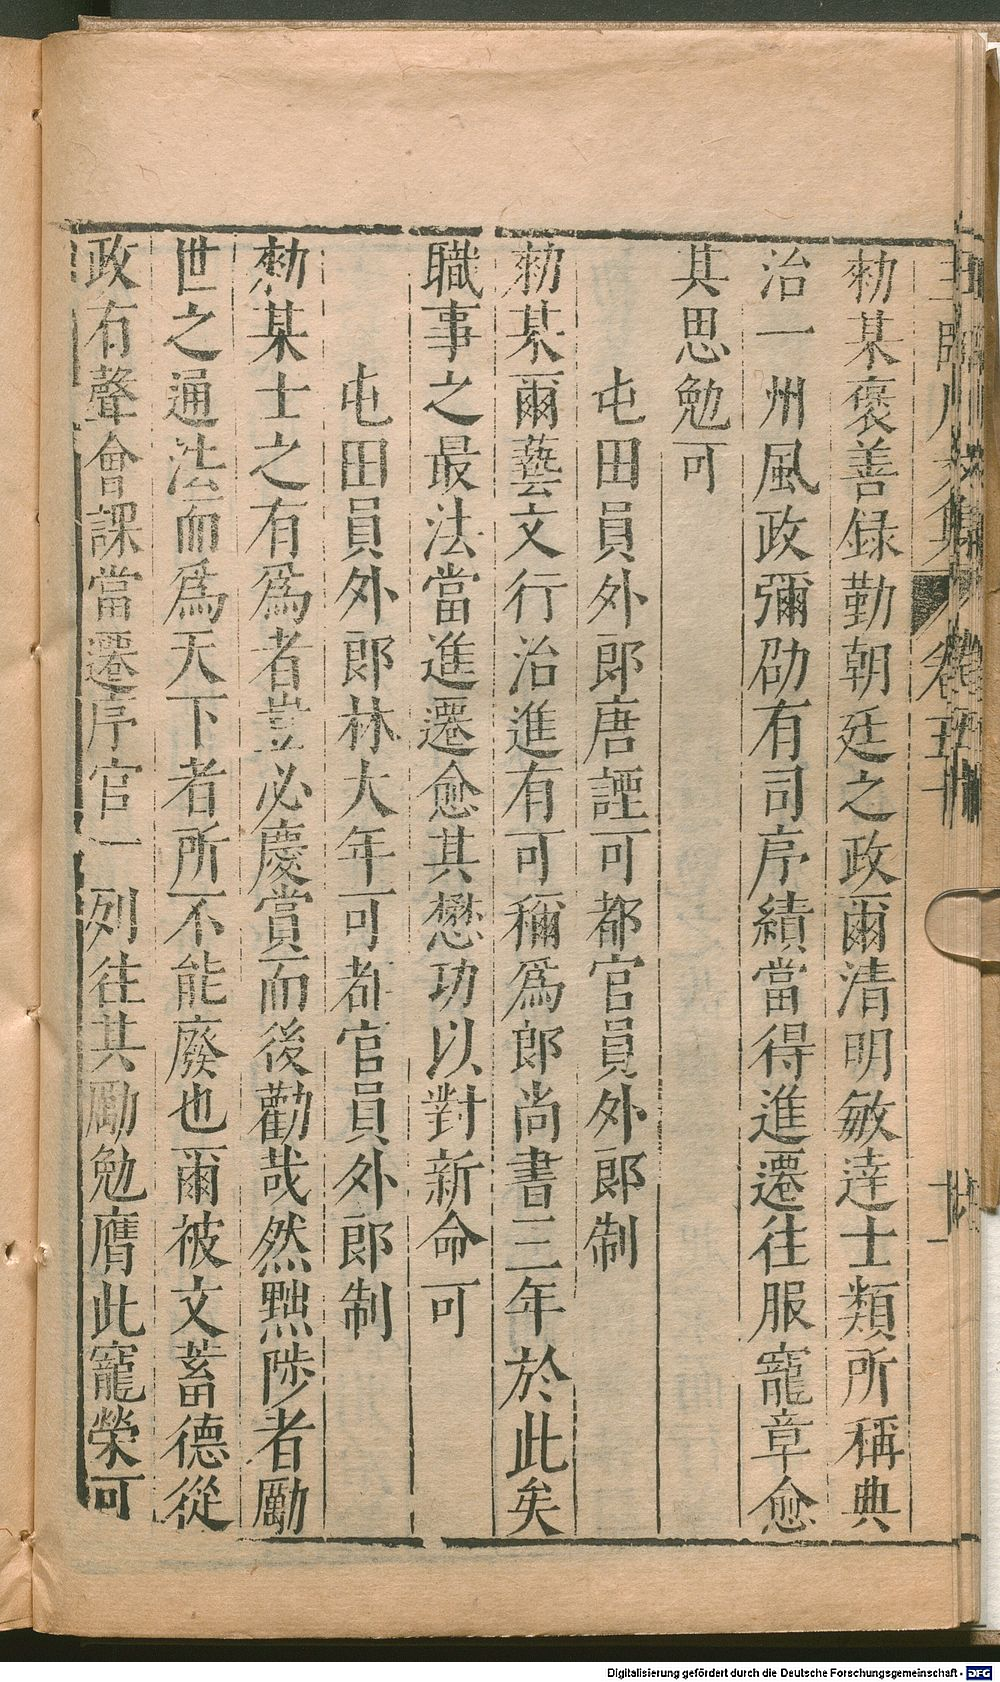 勑某褒善録勤朝廷之政爾清明敏達士類所稱典
治一州風政彌劭有司序績當得進遷往服寵章愈
其思勉可
屯田員外郎唐諲可都官員外郎制
勑某爾藝文行治進有可稱爲郎尚書三年於此矣
職事之最法當進遷愈其懋功以對新命可
屯田員外郎林大年可都官員外郎制
勑某士之有爲者豈必慶賞而後勸哉然黜陟者勵
世之通法而爲天下者所不能廢也爾被文蓄德從
政有聲會課當遷序官一列往其勵勉膺此寵榮可
Digitalisierung gefördert durch die Deutsche Forschungsgemeinschaft - DFG